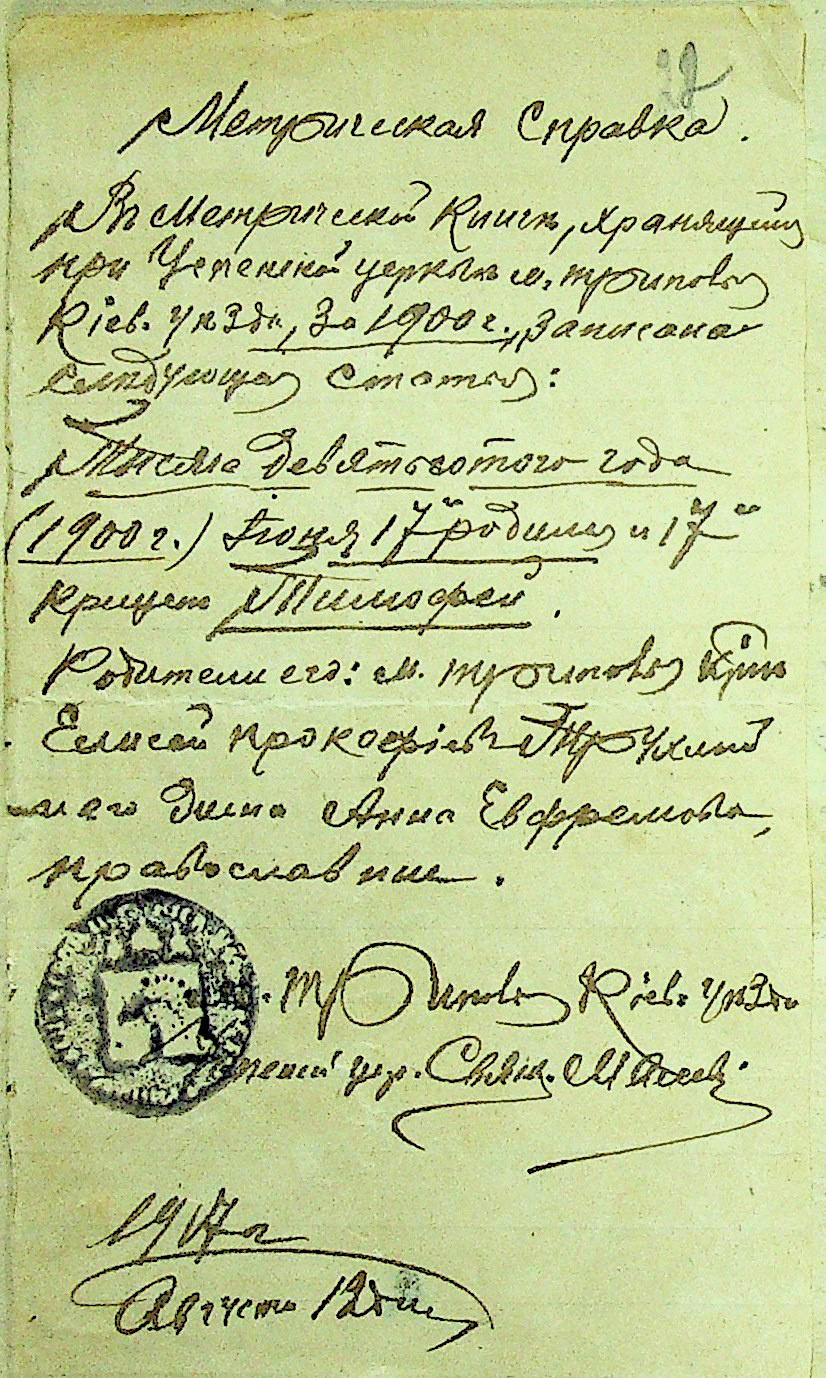 Метрическая Справка.
Въ Метрической Книгѣ, хранящейся
при Успенской церкви м. Триполья
Кіев. уѣзда, за 1900 г., записана
слѣдующая статья:
Тысяча девятьсотого года
(1900 г.) Іюня 17го родился и 17го
крещенъ Тимофей.
Родители его: м. Триполья кр-нъ
Елисей Прокофіевъ
и его жена Анна Евфремова,
православные.
м. Триполья Кіев. уѣзда
Успенской цер. Свящ.
1917 г.
Августа 12 дня